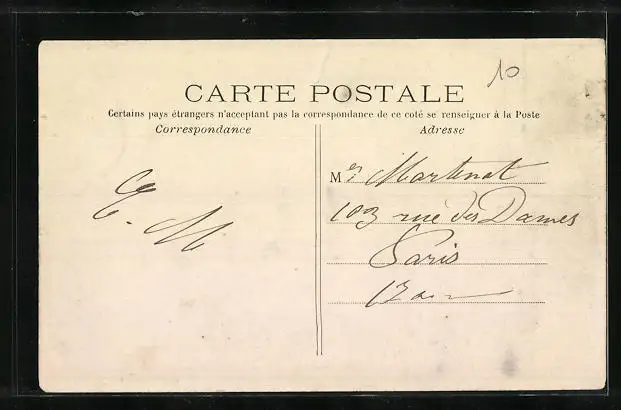 10
CARTE POSTALE
Certains pays étrangers n'acceptant pas la correspondance de ce coté se renseigner à la Poste
Correspondance
Adresse
E. M
Mes Martinat
103 rue des Dames
Paris